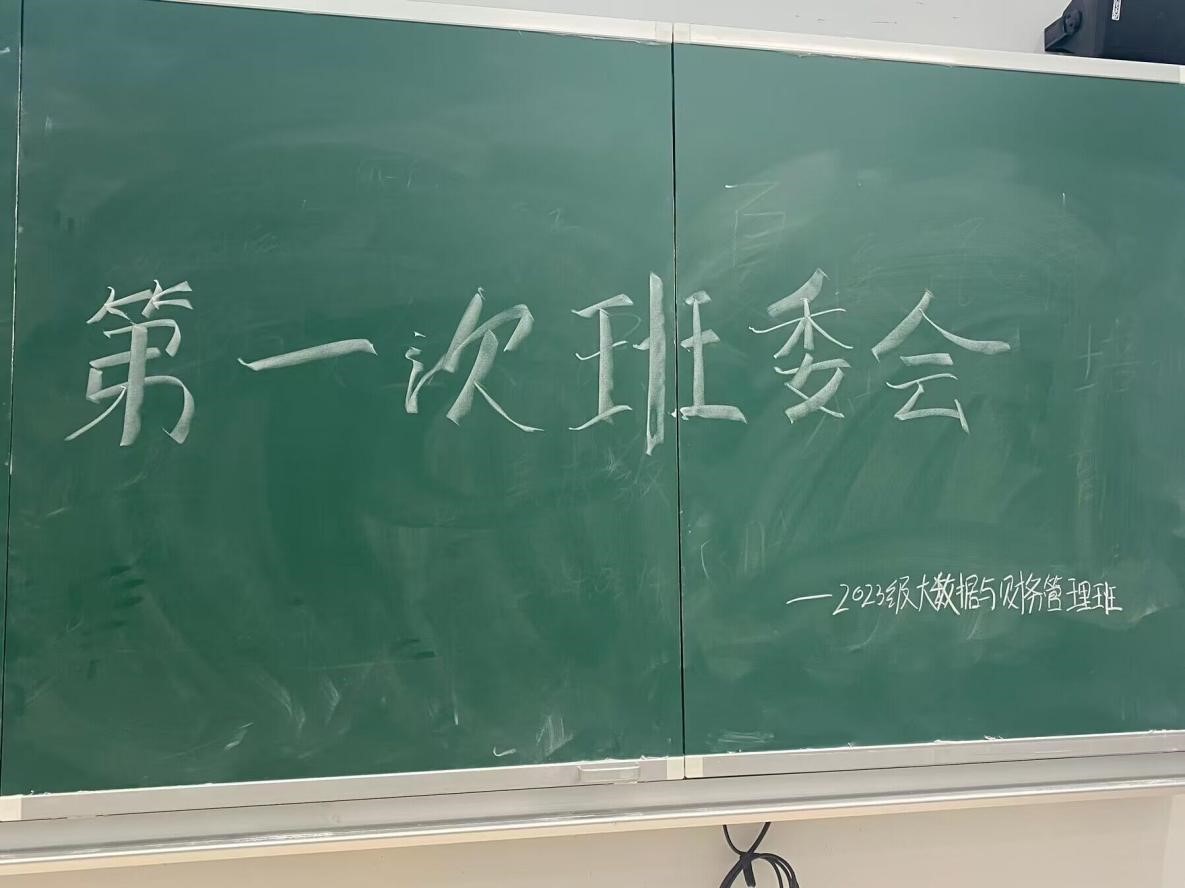 第一次班委会
—2023级大数据与财务管理班